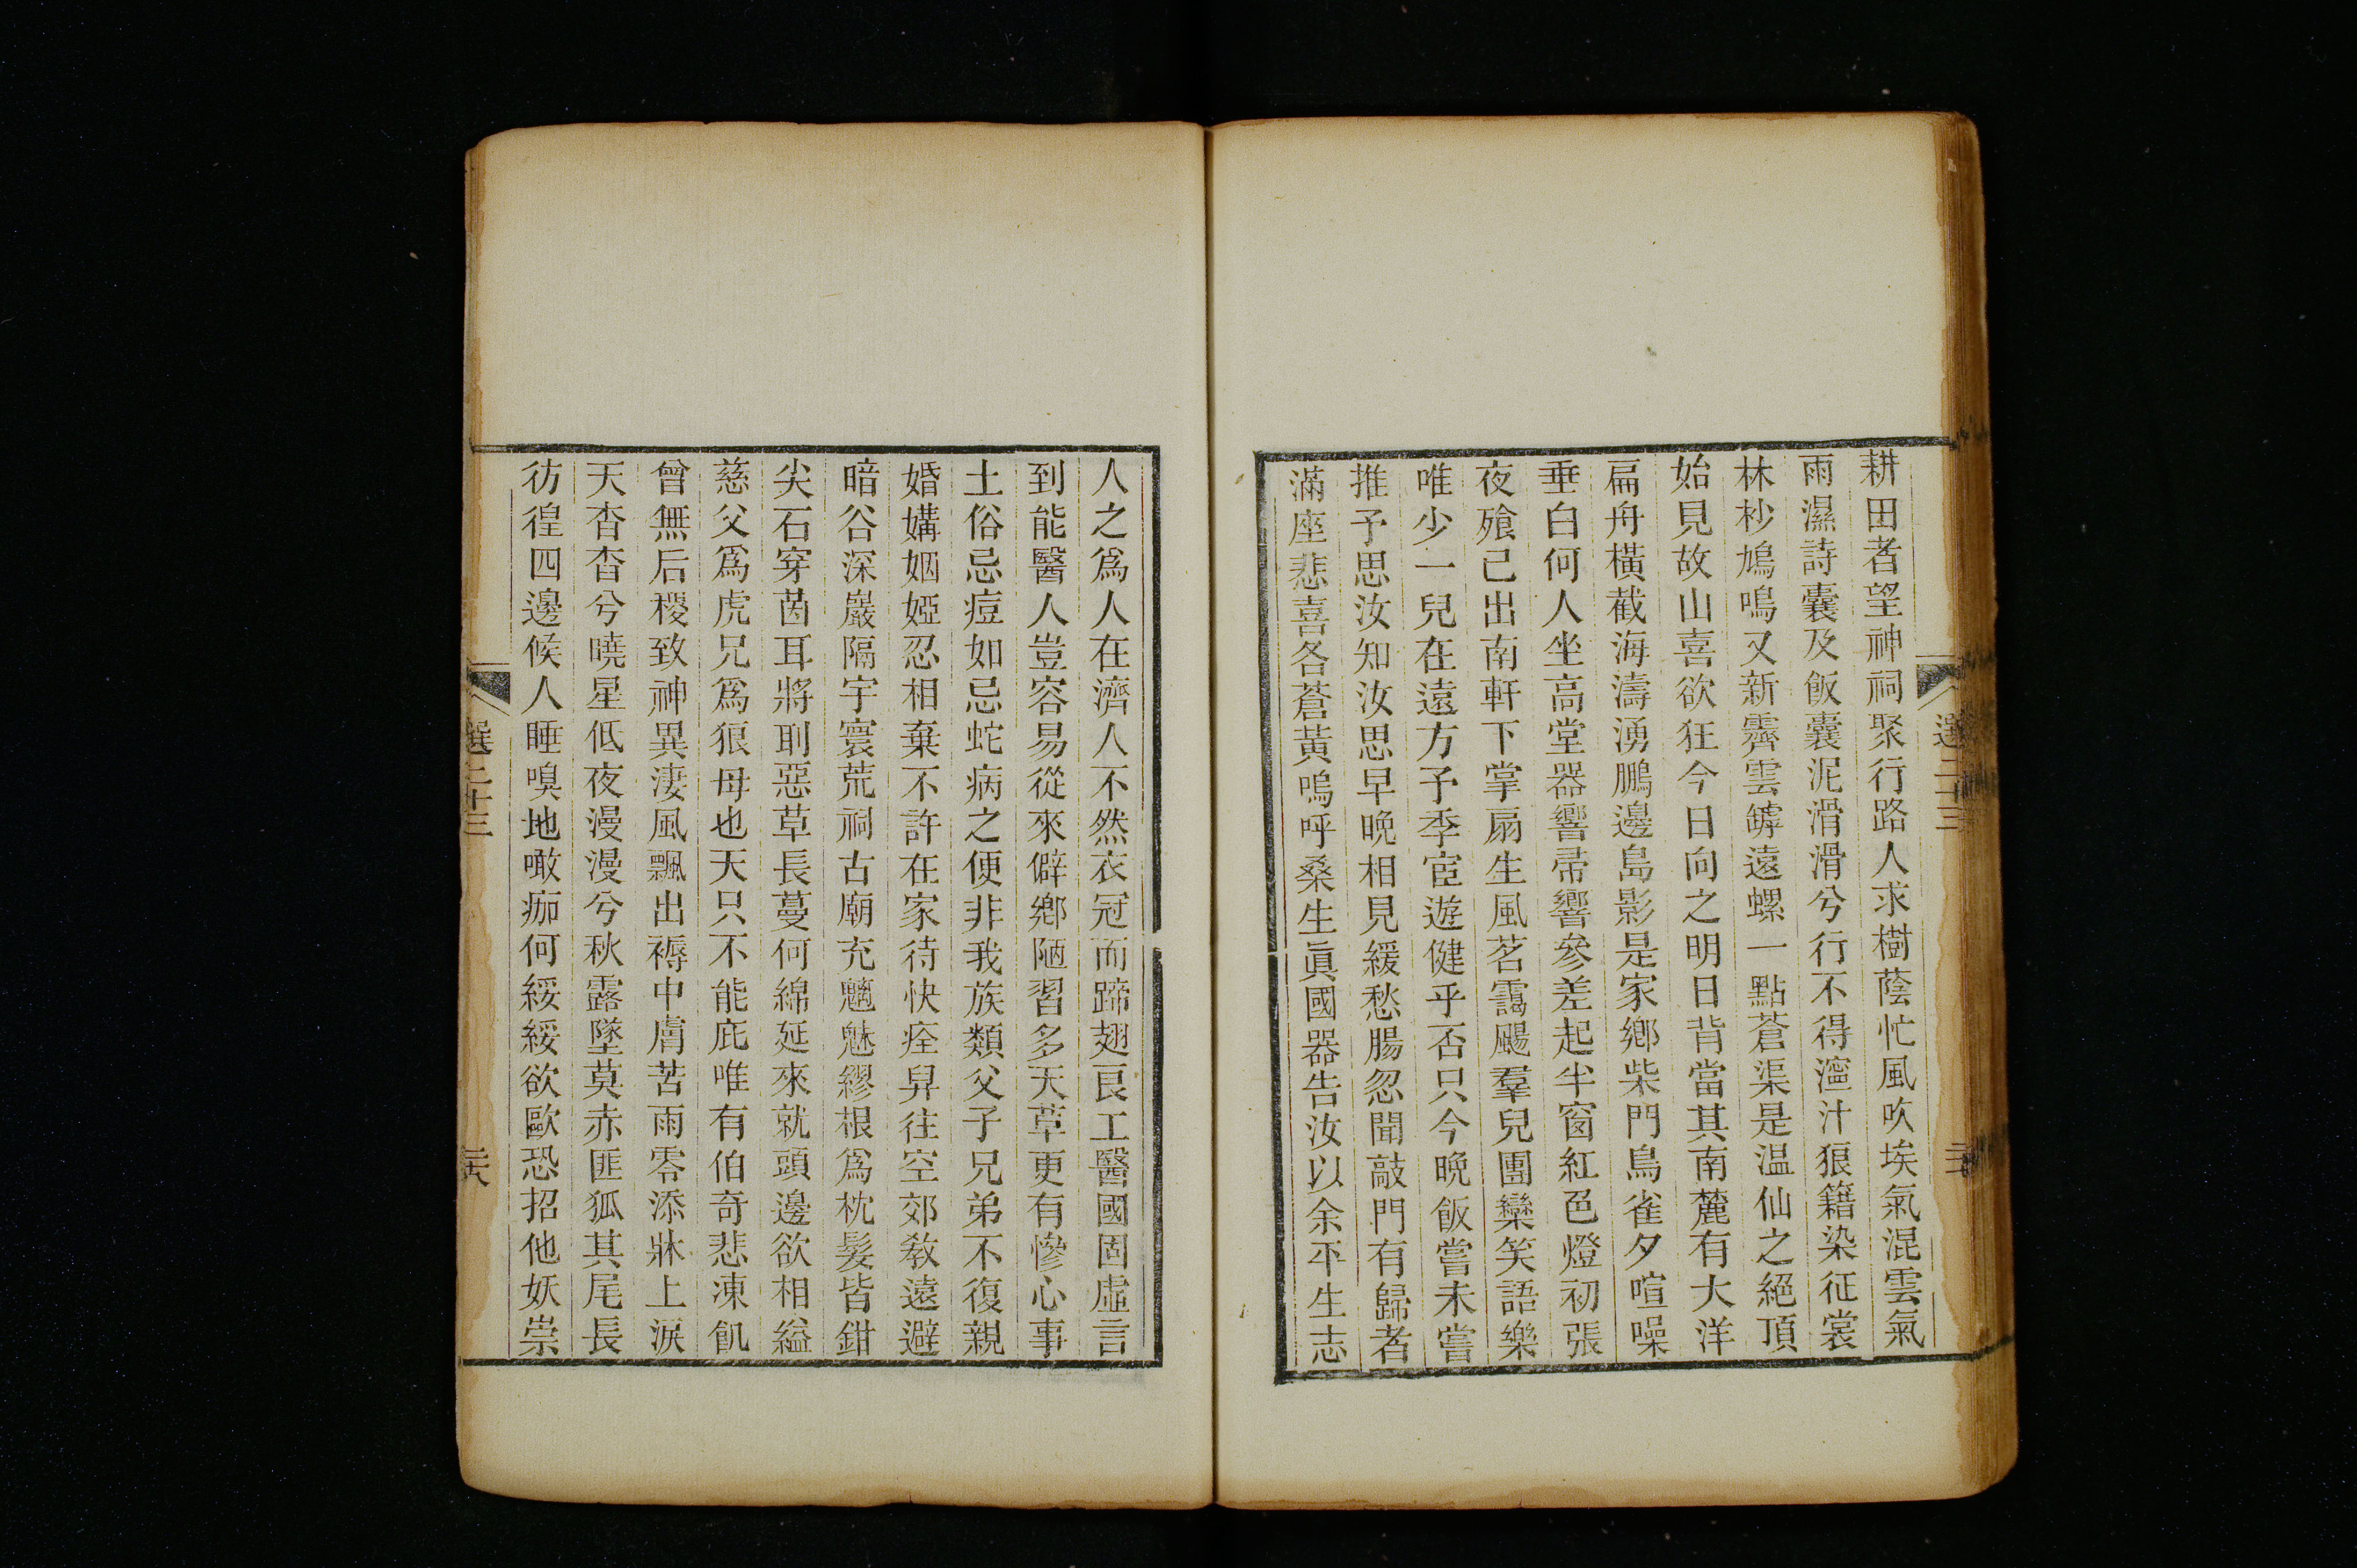 耕田者望神祠聚行路人求樹蔭忙風吹埃氣混雲氣
雨濕詩囊及飯囊泥滑滑兮行不得瀊汁狼籍染征裳
林杪鳩鳴又新霽雲罅遠螺一點蒼渠是温仙之絕頂
始見故山喜欲狂今日向之明日背當其南麓有大洋
扁舟橫截海濤湧鵬邊島影是家鄉柴門鳥雀夕喧噪
垂白何人坐高堂器響帚響參差起半窗紅色燈初張
夜飱已出南軒下掌扇生風茗靄颺羣兒團欒笑語樂
唯少一兒在遠方予季宦遊健乎否只今晚飯嘗未嘗
推予思汝知汝思早晚相見緩愁腸忽聞敲門有歸者
滿座悲喜各蒼黃嗚呼桑生眞國器告汝以余平生志
人之爲人在濟人不然衣冠而蹄翅良工醫國固虛言
到能醫人豈容易從來僻鄉陋習多天草更有慘心事
土俗忌痘如忌蛇病之便非我族類父子兄弟不復親
婚媾姻婭忍相棄不許在家待快痊舁往空郊教遠避
暗谷深巖隔宇寰荒祠古廟充魑魅繆根爲枕髮皆鉗
尖石穿茵耳將刵惡草長蔓何綿延來就頭邊欲相縊
慈父爲虎兄爲狼母也天只不能庇唯有伯奇悲凍飢
曾無后稷致神異淒風飄出褥中膚苦雨零添牀上淚
天杳杳兮曉星低夜漫漫兮秋露墜莫赤匪狐其尾長
彷徨四邊候人睡嗅地噉痂何綏綏欲歐恐招他妖祟
選二十三
二十八